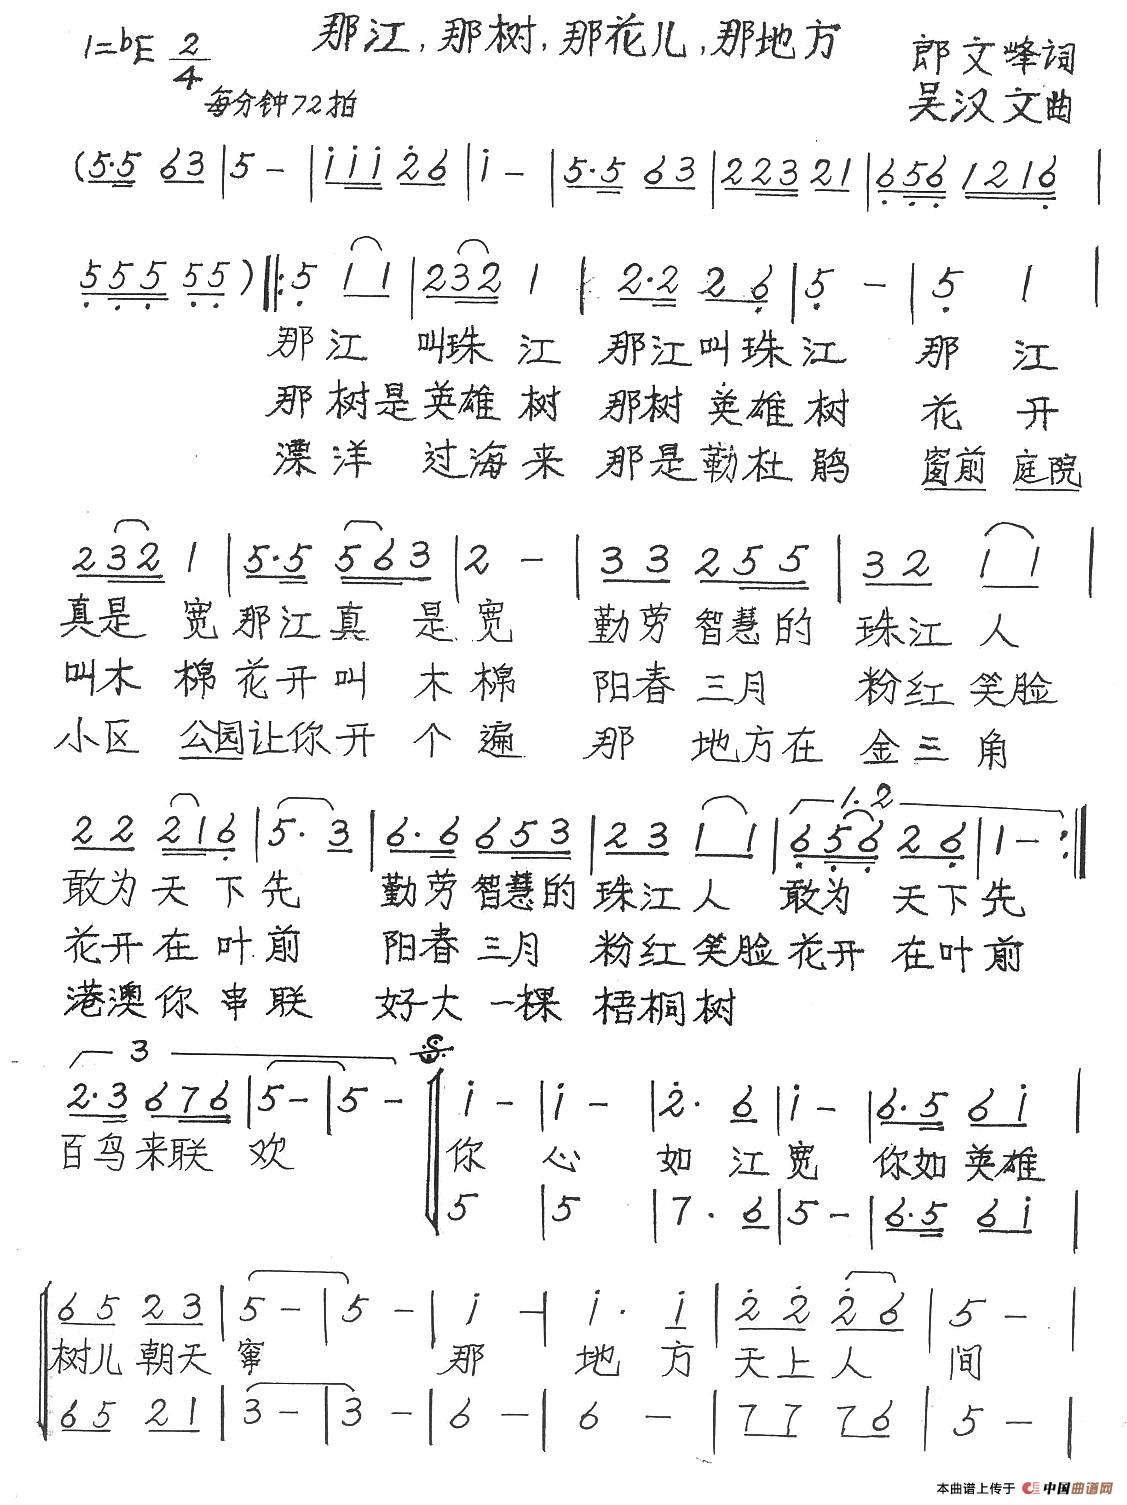 那江,那树,那花儿,那地方
1=bE 2/4
每分钟72拍
郎文峰词
吴汉文曲
(5·5 63 | 5 - | i i i 2 6 | i - | 5·5 63 | 223 21 | 656 1216 |
555 55 ) ||: 5 1 1 | 232 1 | 2·2 2 6 | 5 - | 5 1 |
那江 叫珠江 那江叫珠江 那江
那树是英雄树 那树英雄树 花开
漂洋 过海来 那是勒杜鹃 窗前庭院
232 1 | 5·5 563 | 2 - | 33 255 | 32 1 1 |
真是宽那江真是宽 勤劳智慧的珠江人
叫木棉花开叫木棉 阳春三月 粉红笑脸
小区公园让你开个遍 那 地方在金三角
1.2
22 216 | 5· 3 | 6·6 653 | 23 1 1 | 656 26 | 1 - :||
敢为天下先 勤劳智慧的珠江人 敢为天下先
花开在叶前 阳春三月 粉红笑脸花开在叶前
港澳你串联 好大一棵梧桐树
3
2·3 676 | 5 - | 5 - || i - | i - | 2· 6 | i - | 6·5 6 i |
百鸟来联欢 你心如江宽 你如英雄
5 | 5 | 7· 6 | 5 - | 6·5 6 i |
65 23 | 5 - | 5 - | i - | i· i | 2 2 2 6 | 5 -
树儿朝天窜 那地方天上人间
65 21 | 3 - | 3 - | 6 - | 6 - | 77 76 | 5 - |
本曲谱上传于 中国曲谱网